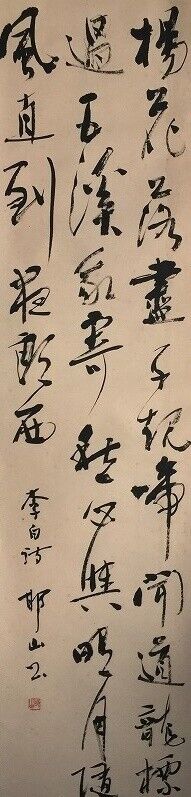 楊花落盡子規啼聞道龍標
過五溪我寄愁心與明月隨
風直到夜郎西
李白詩 邨山書